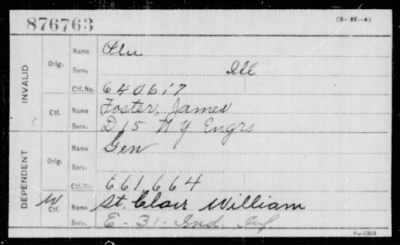 876763
(3-416-A)
INVALID
Orig.
Name
Serv. Ill
Ctf. No. 640617
Ctf.
Name Foster, James
Serv. D, 15 N Y Engrs
DEPENDENT
Orig.
Name Gen
Serv.
Ctf. No. 661,664
W Ctf.
Name St. Clair William
Serv. E-31-Ind. Inf.